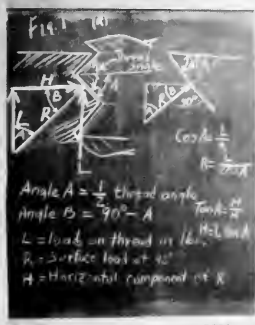 FIG. 1
(A)
Thread
angle
A
H
B
R
L
90°
L
Cos A = L/R
R = L/Cos A
Angle A = 1/2 thread angle
Angle B = 90° - A
Tan A = H/L
H = L tan A
L = load on thread in lbs.
R = Surface load at 90°
H = Horizontal component of R